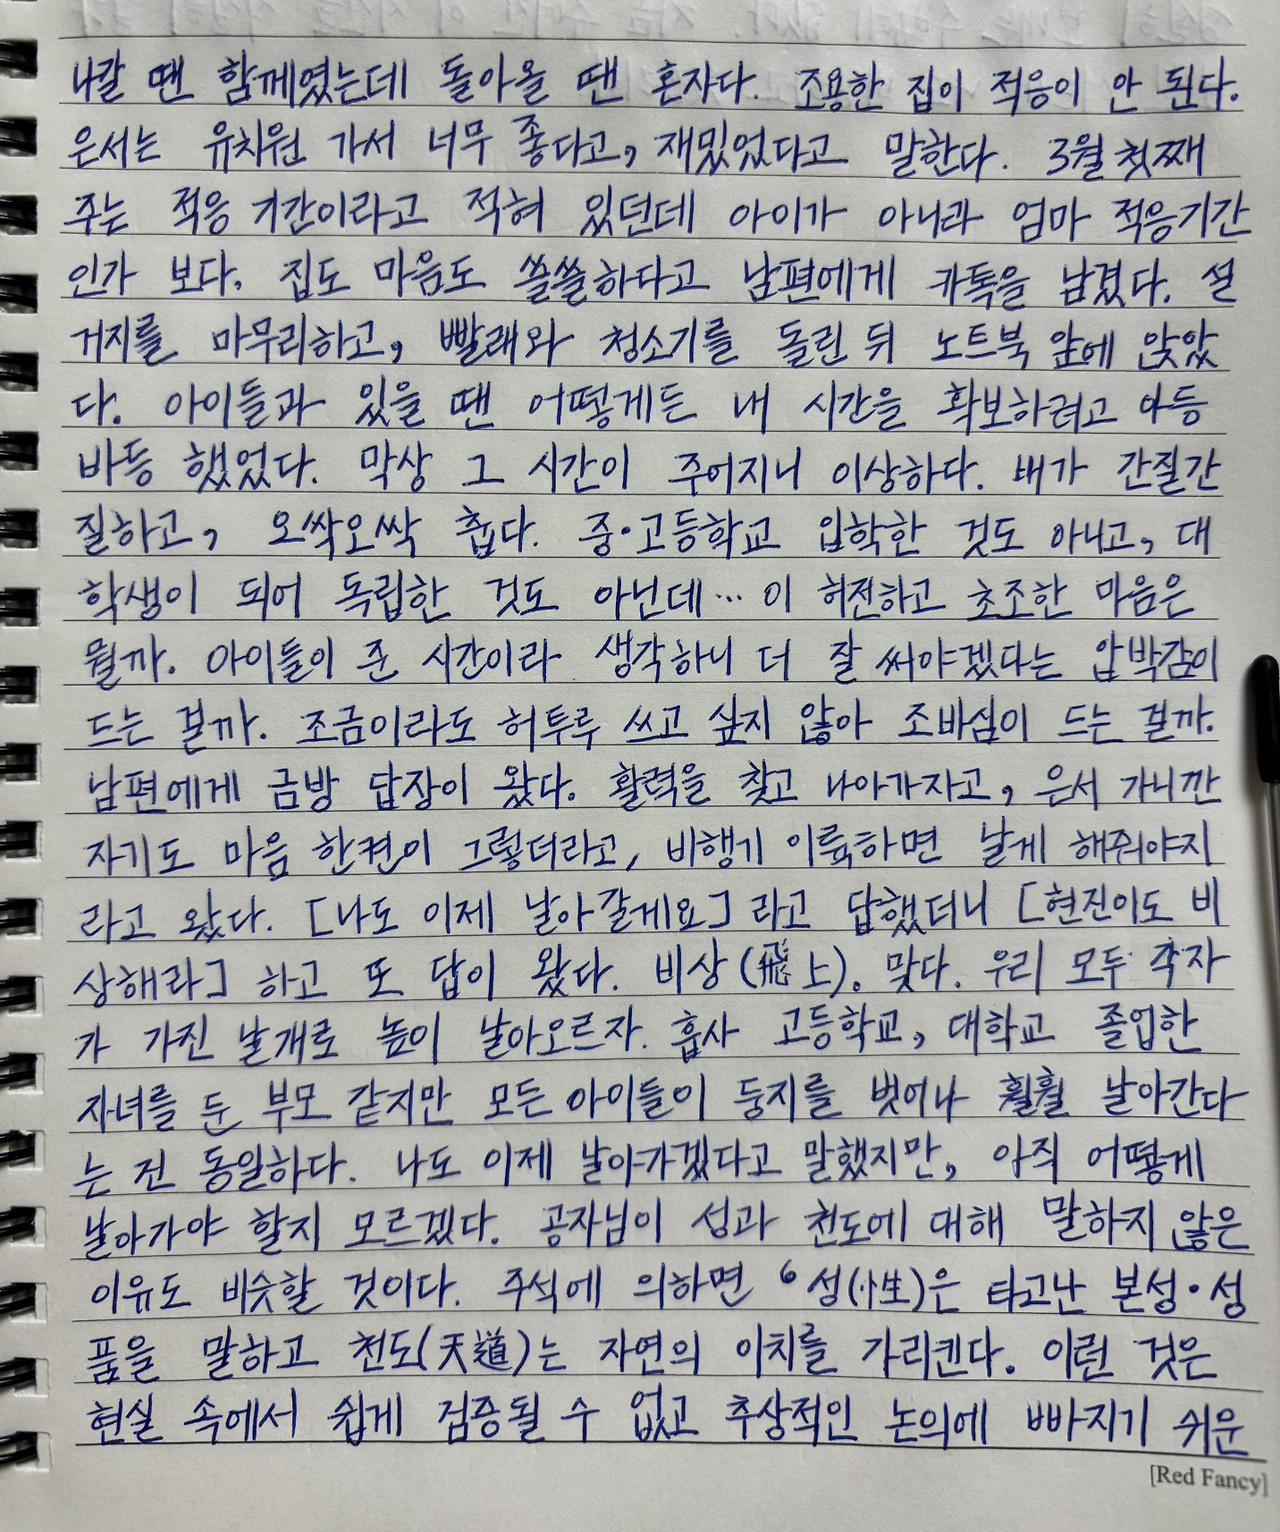 나갈 땐 함께였는데 돌아올 땐 혼자다. 조용한 집이 적응이 안 된다.
은서는 유치원 가서 너무 좋다고, 재밌었다고 말한다. 3월 첫째
주는 적응 기간이라고 적혀 있던데 아이가 아니라 엄마 적응기간
인가 보다. 집도 마음도 쓸쓸하다고 남편에게 카톡을 남겼다. 설
거지를 마무리하고, 빨래와 청소기를 돌린 뒤 노트북 앞에 앉았
다. 아이들과 있을 땐 어떻게든 내 시간을 확보하려고 아등
바등 했었다. 막상 그 시간이 주어지니 이상하다. 배가 간질간
질하고, 오싹오싹 춥다. 중·고등학교 입학한 것도 아니고, 대
학생이 되어 독립한 것도 아닌데… 이 허전하고 초조한 마음은
뭘까. 아이들이 준 시간이라 생각하니 더 잘 써야겠다는 압박감이
드는 걸까. 조금이라도 허투루 쓰고 싶지 않아 조바심이 드는 걸까.
남편에게 금방 답장이 왔다. 활력을 찾고 나아가자고, 은서 가니깐
자기도 마음 한켠이 그렇더라고, 비행기 이륙하면 날게 해줘야지
라고 왔다. [나도 이제 날아갈게요] 라고 답했더니 [현진이도 비
상해라] 하고 또 답이 왔다. 비상(飛上). 맞다. 우리 모두 각자
가 가진 날개로 높이 날아오르자. 흡사 고등학교, 대학교 졸업한
자녀를 둔 부모 같지만 모든 아이들이 둥지를 벗어나 훨훨 날아간다
는 건 동일하다. 나도 이제 날아가겠다고 말했지만, 아직 어떻게
날아가야 할지 모르겠다. 공자님이 성과 천도에 대해 말하지 않은
이유도 비슷할 것이다. 주석에 의하면 ‘성(性)은 타고난 본성·성
품을 말하고 천도(天道)는 자연의 이치를 가리킨다. 이런 것은
현실 속에서 쉽게 검증될 수 없고 추상적인 논의에 빠지기 쉬운
[Red Fancy]